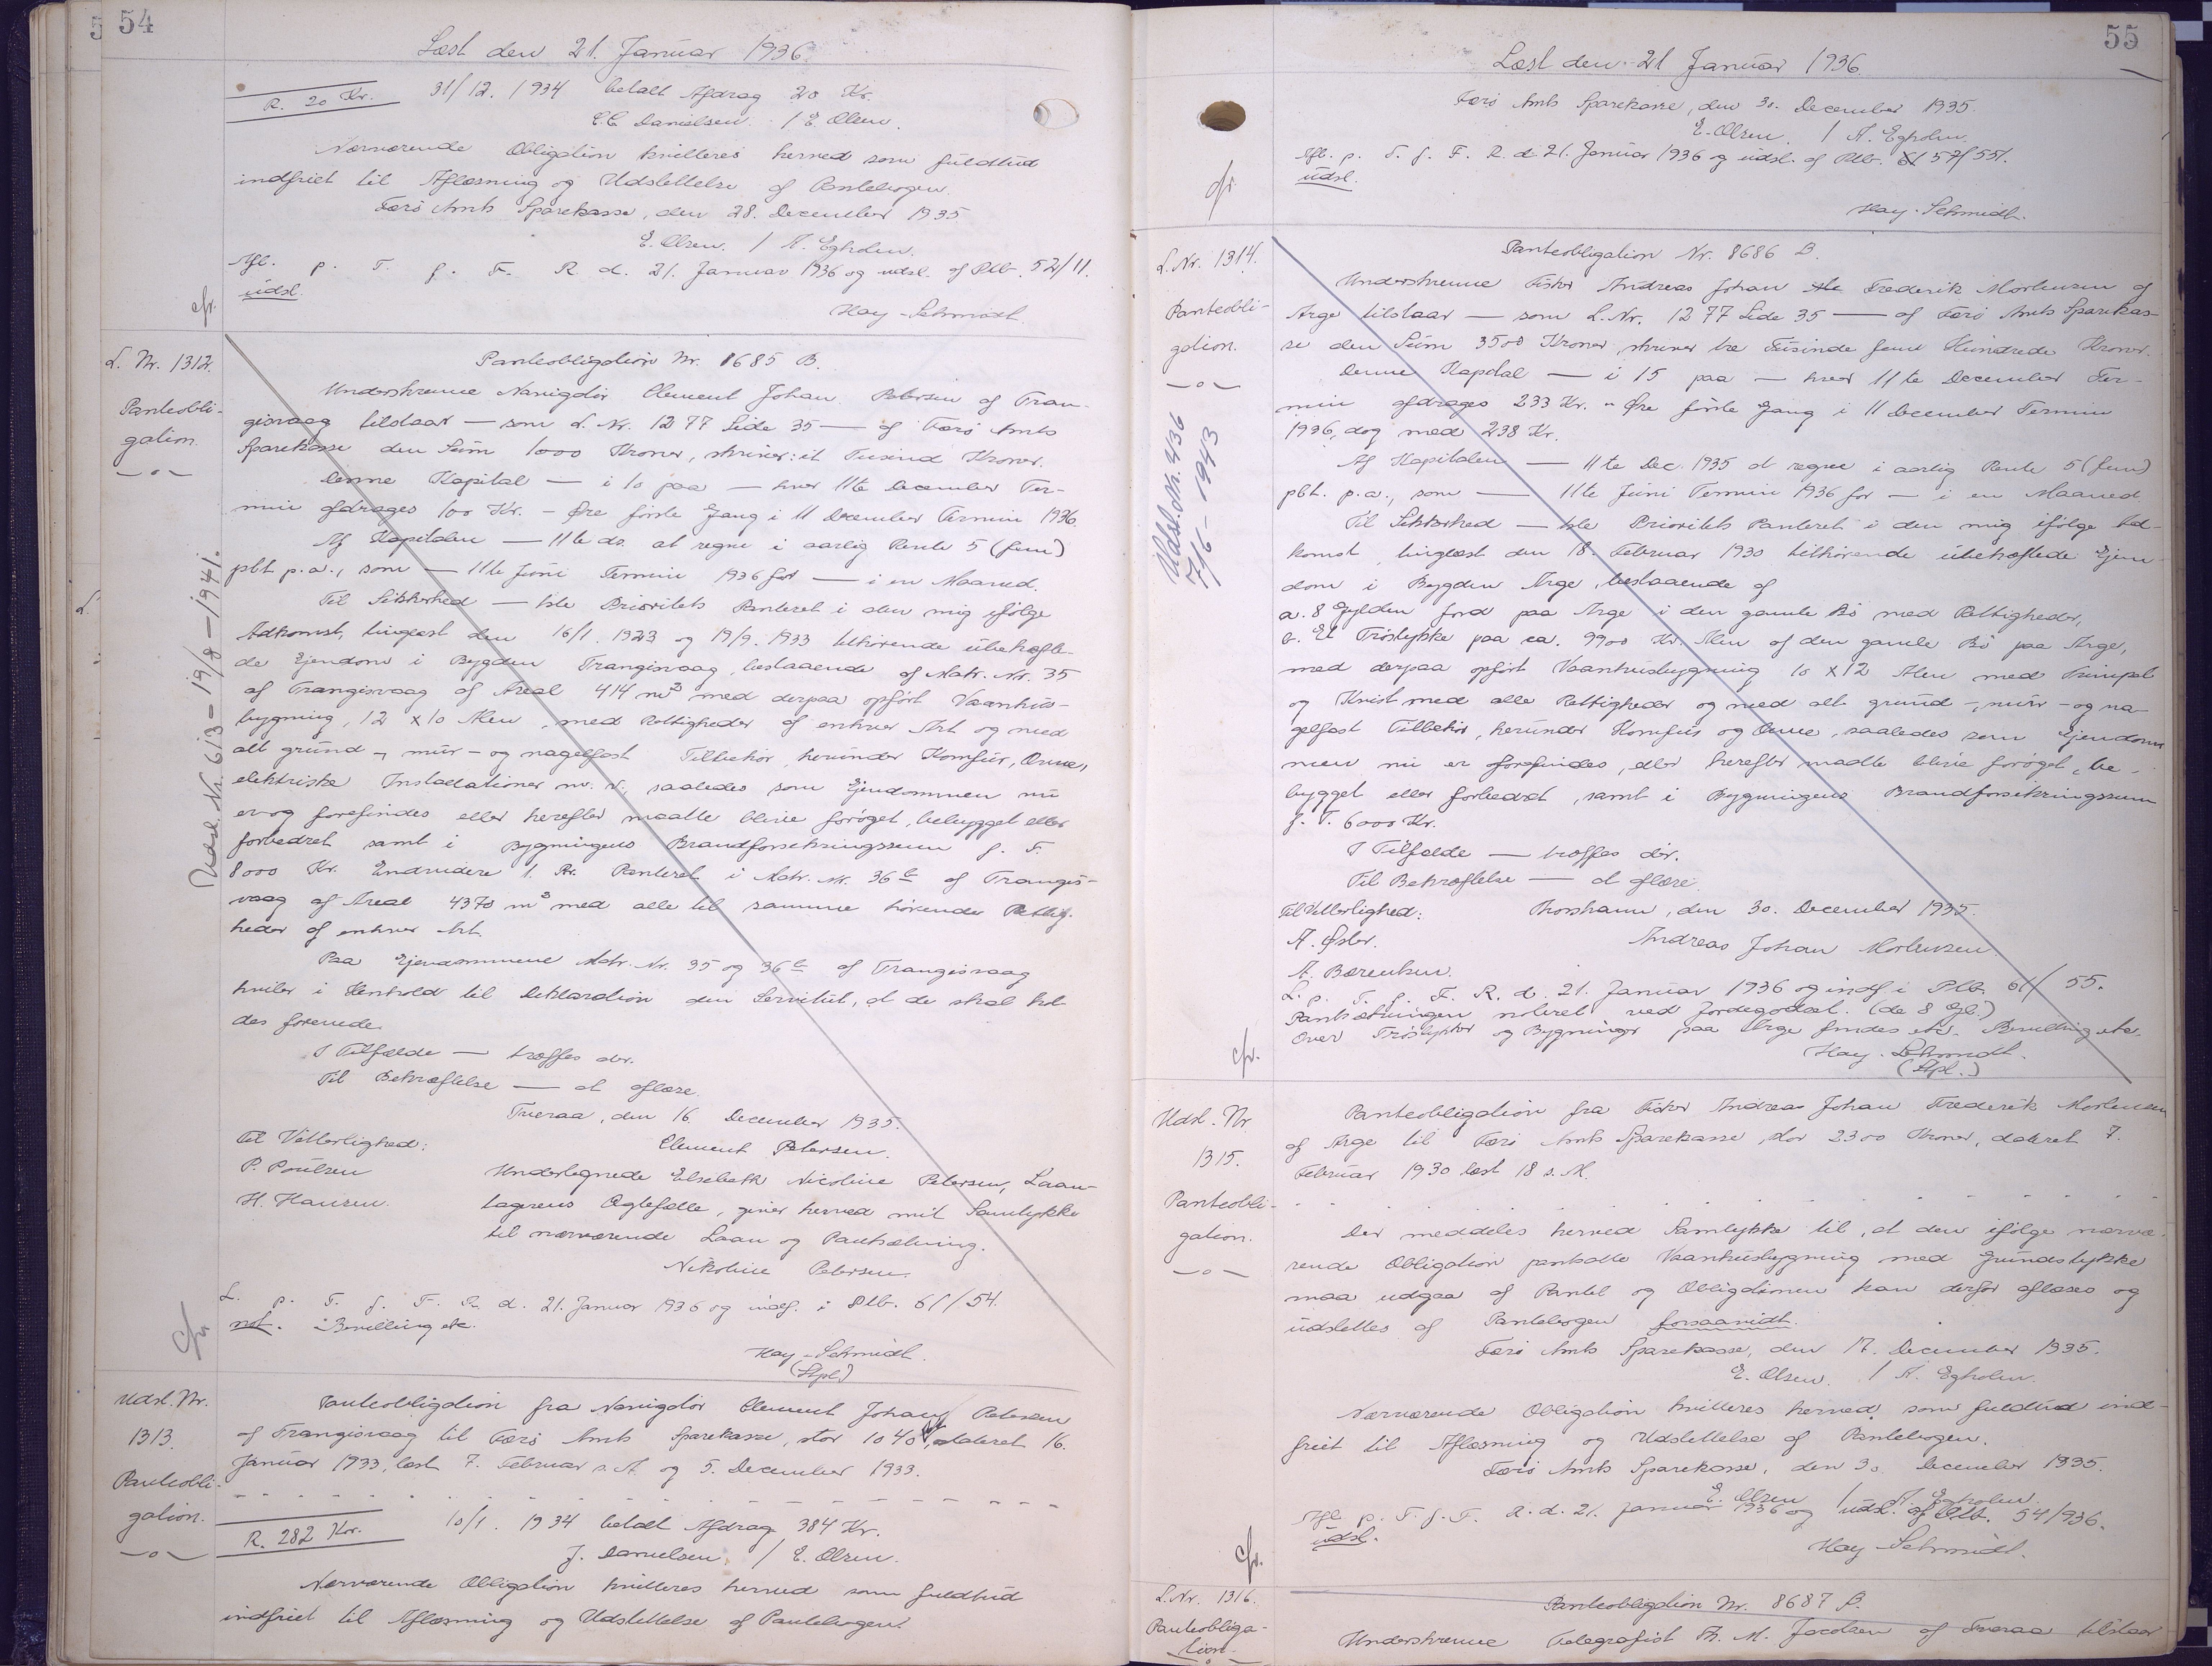 54
Læst den 21. Januar 1936.
R. 20 Kr.
31/12. 1934 betalt Afdrag 20 Kr.
E.C. Danielsen. / E. Olsen.
Nærværende Obligation kvitteres herved som fuldtud
indfriet til Aflæsning og Udslettelse af Pantebogen.
Færø Amts Sparekasse, den 28. December 1935
E. Olsen. / A. Egholm.
Afl. p. T. f. F. R. d. 21. Januar 1936 og udsl. af Ptb. 52/11.
udsl.
Hay-Schmidt.
cfr.
L. Nr. 1312.
Panteobli-
gation.
Udsl. Nr. 613 - 19/8 - 1941.
Panteobligation Nr. 8685 B.
Underskrevne Navigatör Clement Johan Petersen af Tran-
gisvaag tilstaar — som L. Nr. 1277 Side 35 — af Færø Amts
Sparekasse den Sum 1000 Kroner, skriver: et Tusind Kroner.
Denne Kapital — i 10 paa — hver 11te December Ter-
min afdrages 100 Kr. - Øre første Gang i 11 December Termin 1936.
Af Kapitalen — 11te ds. at regne i aarlig Rente 5 (fem)
pCt. p.a., som — 11te Juni Termin 1936 for — i en Maaned.
Til Sikkerhed — 1ste Prioritets Panteret i den mig ifølge
Adkomst, tinglæst den 16/1. 1923 og 19/9. 1933 tilhørende ubehæfte-
de Ejendom i Bygden Trangisvaag, bestaaende af Matr. Nr. 35
af Trangisvaag af Areal 414 m² med derpaa opført Vaanhus-
bygning, 12 x 10 Alen, med Rettigheder af enhver Art og med
alt grund-, mur- og nagelfast Tilbehør, herunder Komfur, Ovne,
elektriske Installationer m.v., saaledes som Ejendommen nu
er og forefindes eller herefter maatte blive forøget, bebygget eller
forbedret samt i Bygningens Brandforsikringssum f. T.
8000 Kr. Endvidere 1. Pr. Panteret i Matr. Nr. 36 af Trangis-
vaag af Areal 4370 m² med alle til samme hørende Rettig-
heder af enhver Art.
Paa Ejendommene Matr. Nr. 35 og 36 af Trangisvaag
hviler i Henhold til Deklaration den Servitut, at de skal hol-
des forenede.
I Tilfælde — træffes der.
Til Bekræftelse — at aflæse.
Tveraa, den 16. December 1935.
Til Vitterlighed: Clement Petersen.
P. Poulsen
H. Hansen.
Undertegnede Elsebeth Nicoline Petersen, Laan-
tagerens Ægtefælle, giver herved mit Samtykke
til nærværende Laan og Pantsætning.
Nikoline Petersen.
L. p. T. f. F. R. d. 21. Januar 1936 og indf. i Ptb. 61/54.
not. Bevilling etc.
Hay-Schmidt.
(Stpl.)
cfr.
Udsl. Nr.
1313.
Panteobli-
gation.
Panteobligation fra Navigatör Clement Johan Petersen
af Trangisvaag til Færø Amts Sparekasse, stor 1040 Kr, dateret 16.
Januar 1933, læst 7. Februar s. A. og 5. December 1933.
R. 282 Kr.
10/1. 1934 betalt Afdrag 384 Kr.
J. Danielsen, / E. Olsen.
Nærværende Obligation kvitteres herved som fuldtud
indfriet til Aflæsning og Udslettelse af Pantebogen.
55
Læst den 21 Januar 1936.
Færø Amts Sparekasse, den 30. December 1935.
E. Olsen. / A. Egholm.
Afl. p. T. f. F. R. d. 21. Januar 1936 og udsl. af Ptb. 57/551.
udsl.
Hay-Schmidt.
cfr.
L. Nr. 1314.
Panteobli-
gation.
Udsl. Nr. 436
7/6 - 1943
Panteobligation Nr. 8686 B.
Underskrevne Fisker Andreas Johan Frederik Mortensen af
Arge tilstaar — som L. Nr. 1277 Side 35 — af Færø Amts Sparekas-
se den Sum 3500 Kroner, skriver tre Tusinde fem Hundrede Kroner.
Denne Kapital — i 15 paa — hver 11te December Ter-
min afdrages 233 Kr. " Øre første Gang i 11 December Termin
1936, dog med 238 Kr.
Af Kapitalen — 11te Dec. 1935 at regne i aarlig Rente 5 (fem)
pCt. p.a., som — 11te Juni Termin 1936 for — i en Maaned
Til Sikkerhed — 1ste Prioritets Panteret i den mig ifølge Ad-
komst, tinglæst den 18. Februar 1930 tilhørende ubehæftede Ejen-
dom i Bygden Arge, bestaaende af
a. 8 Gylden Jord paa Arge i den gamle Bø med Rettigheder,
b. Et Trøstykke paa ca. 9900 Kv. Alen af den gamle Bø paa Arge,
med derpaa opført Vaanhusbygning 10 x 12 Alen med Frimpel
og Kvist med alle Rettigheder og med alt grund-, mur- og na-
gelfast Tilbehør, herunder Komfur og Ovne, saaledes som Ejendom-
men nu er forefindes, eller herefter maatte blive forøget, be-
bygget eller forbedret, samt i Bygningens Brandforsikringssum
f. T. 6000 Kr.
I Tilfælde — træffes der.
Til Bekræftelse — at aflæse.
Til Vitterlighed: Thorshavn, den 30. December 1935.
A. Øster. Andreas Johan Mortensen.
A. Bærentsen.
L. p. T. f. F. R. d. 21. Januar 1936 og indf. i Ptb. 61/55.
Pantsætningen noteret ved Jordegodset. (de 8 Gl.)
Over Trøstykker og Bygninger paa Arge findes etc. Bevilling etc.
Hay-Schmidt.
(Stpl.)
cfr.
Udsl. Nr
1315.
Panteobli-
gation.
Panteobligation fra Fisker Andreas Johan Frederik Mortensen
af Arge til Færø Amts Sparekasse, stor 2300 Kroner, dateret 7.
Februar 1930 læst 18 s. M.
Der meddeles herved Samtykke til, at den ifølge nærvæ-
rende Obligation pantsatte Vaanhusbygning med Grundstykke
maa udgaa af Pantet og Obligationen kan derfor aflæses og
udslettes af Pantebogen forsaavidt.
Færø Amts Sparekasse, den 17. December 1935.
E. Olsen. / A. Egholm.
Nærværende Obligation kvitteres herved som fuldtud ind-
friet til Aflæsning og Udslettelse af Pantebogen.
Færø Amts Sparekasse, den 30. December 1935.
E. Olsen / A. Egholm.
Afl. p. T. f. F. R. d. 21. Januar 1936 og udsl. af Ptb. 54/936.
udsl.
Hay-Schmidt.
cfr.
L. Nr. 1316.
Panteobliga-
tion.
Panteobligation Nr. 8687 B.
Underskrevne Telegrafist Th. M. Jacobsen af Tveraa tilstaar